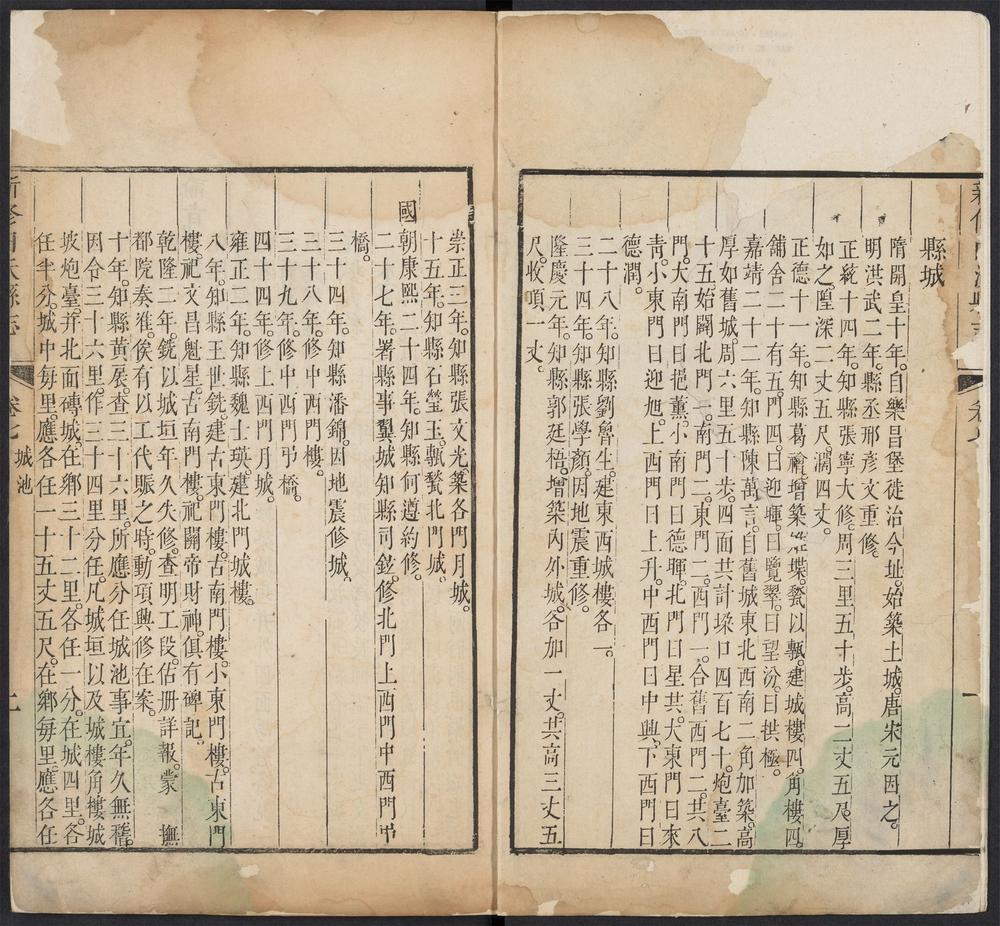 縣城
隋開皇十年。自樂昌堡徙治今址。始築土城。唐宋元因之。
明洪武二年。縣丞邢彥文重修。
正統十四年。知縣張寧大修。周三里五十步。高二丈五尺。厚
如之。隍深二丈五尺。濶四丈。
正德十一年。知縣葛襘增築堆堞。甃以甎。建城樓四。角樓四。
舖舍二十有五。門四。曰迎暉。曰覽翠。曰望汾。曰拱極。
嘉靖二十二年。知縣陳萬言。自舊城東北西南二角加築。高
厚如舊城。周六里五十步。四面共計垜口四百七十。炮臺二
十五始闢北門二。南門二。東門二。西門一。合舊西門二。共八
門。大南門曰挹薰。小南門曰德暉。北門曰星共。大東門曰來
青。小東門曰迎旭。上西門曰上升。中西門曰中興。下西門曰
德潤。
二十八年。知縣劉魯生。建東西城樓各一。
三十四年。知縣張學顏。因地震重修。
隆慶元年。知縣郭廷梧。增築內外城。各加一丈。共高三丈五
尺。收頂一丈。
崇正三年。知縣張文光。築各門月城。
十五年。知縣石瑩玉。甎甃北門城。
國朝康熙二十四年。知縣何遵約修。
二十七年。署縣事翼城知縣司鉉。修北門上西門中西門弔
橋。
三十四年。知縣潘錦。因地震修城。
三十八年。修中西門樓。
三十九年。修中西門弔橋。
四十四年。修上西門月城。
雍正二年。知縣魏士瑛。建北門城樓。
八年。知縣王世銑。建古東門樓。古南門樓。小東門樓。古東門
樓。祀文昌魁星。古南門樓。祀關帝財神。俱有碑記。
乾隆二年。銑以城垣年久失修。查明工段。估册詳報。蒙　撫
都院奏准。俟有以工代賑之時。動項興修在案。
十年。知縣黃展查三十六里。所應分任城池事宜。年久無稽。
因令三十六里。作三十四里分任。凡城垣以及城樓角樓城
坡炮臺。并北面磚城。在鄉三十二里。各任一分。在城四里。各
任半分。城中每里。應各任一十五丈五尺。在鄉每里。應各任
卷七　城池